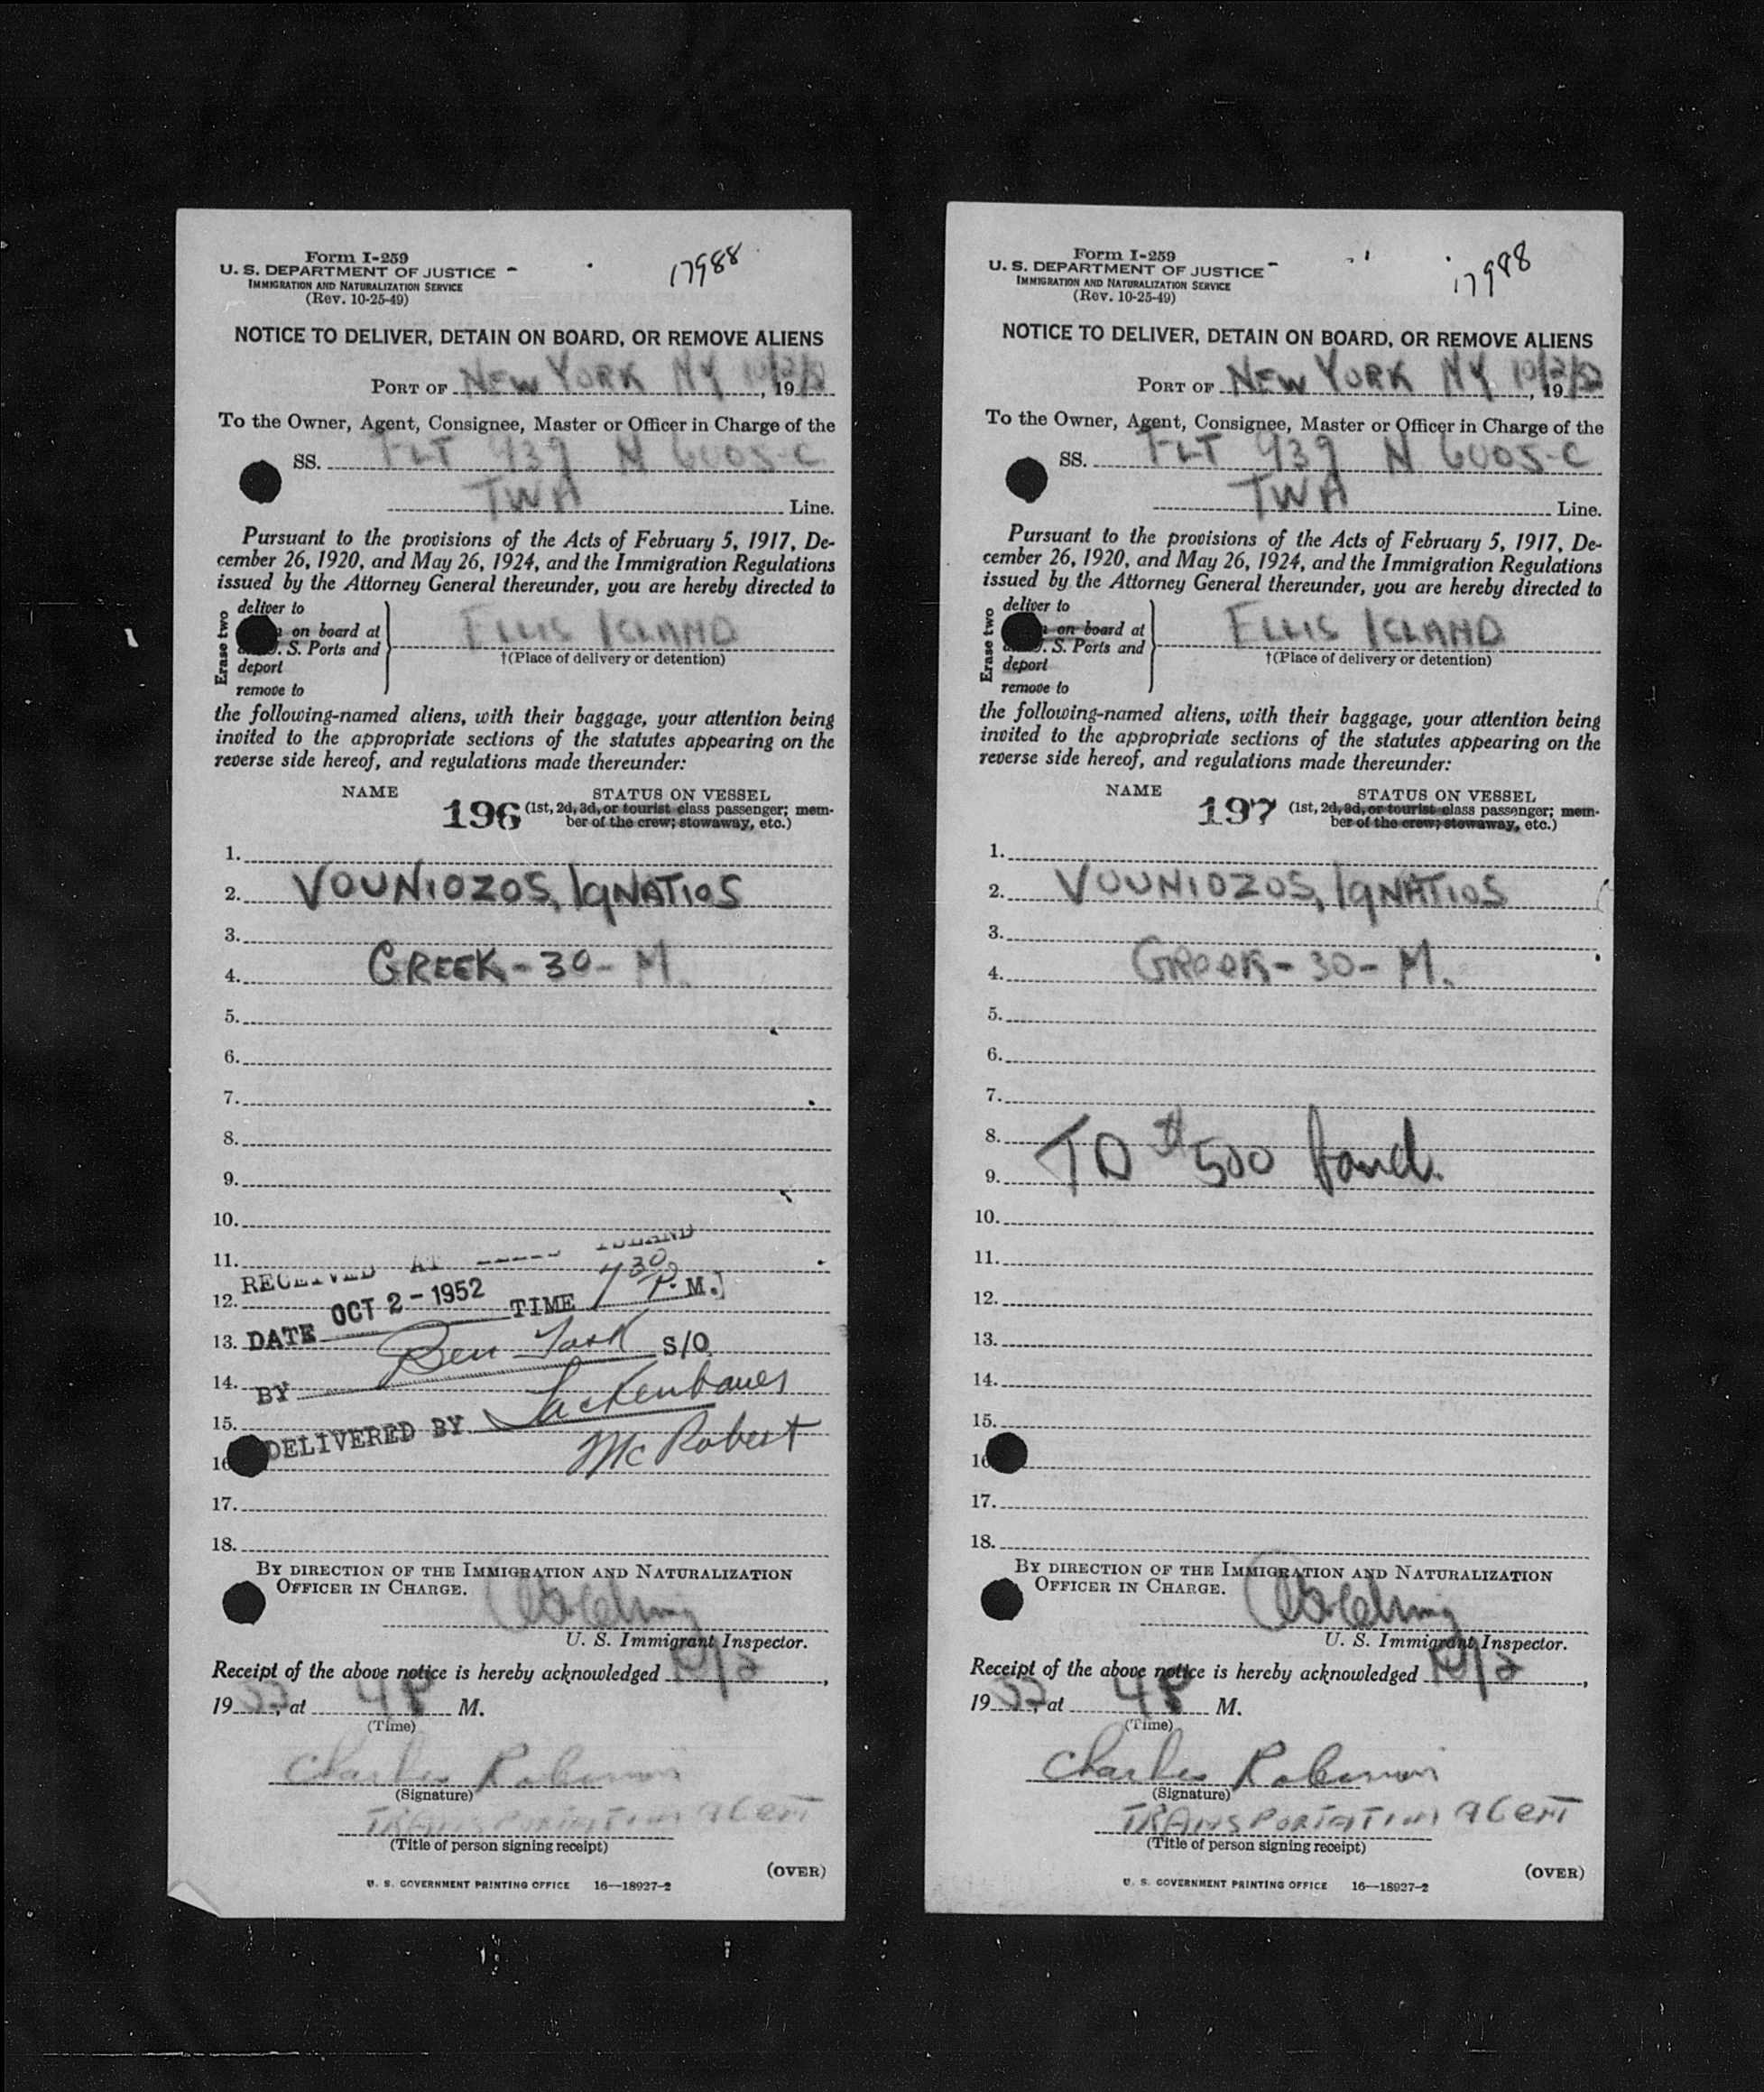 Form I-259
U. S. DEPARTMENT OF JUSTICE
IMMIGRATION AND NATURALIZATION SERVICE
(Rev. 10-25-49)
17988
NOTICE TO DELIVER, DETAIN ON BOARD, OR REMOVE ALIENS
PORT OF NEW YORK NY 10/2/52, 19
To the Owner, Agent, Consignee, Master or Officer in Charge of the
SS. FLT 939 N 6005-C
TWA Line.
Pursuant to the provisions of the Acts of February 5, 1917, De-
cember 26, 1920, and May 26, 1924, and the Immigration Regulations
issued by the Attorney General thereunder, you are hereby directed to
Erase two
deliver to
on board at
S. Ports and
deport
remove to
ELLIS ISLAND
†(Place of delivery or detention)
the following-named aliens, with their baggage, your attention being
invited to the appropriate sections of the statutes appearing on the
reverse side hereof, and regulations made thereunder:
NAME
196
STATUS ON VESSEL
(1st, 2d, 3d, or tourist class passenger; mem-
ber of the crew; stowaway, etc.)
1.
2. VOUNIOZOS, IGNATIOS
3.
4. GREEK - 30 - M.
5.
6.
7.
8.
9.
10.
11.
RECEIVED AT ELLIS ISLAND
12.
DATE OCT 2 - 1952 TIME 7 30 P. M.
13.
BY Ben S/O
14.
15.
DELIVERED BY Lackenbauer
McRobert
16
17.
18.
BY DIRECTION OF THE IMMIGRATION AND NATURALIZATION
OFFICER IN CHARGE.
U. S. Immigrant Inspector.
Receipt of the above notice is hereby acknowledged 10/2,
1952, at 4 P M.
(Time)
Charles Robinson
(Signature)
TRANSPORTATION AGENT
(Title of person signing receipt)
(OVER)
U. S. GOVERNMENT PRINTING OFFICE 16—18927-2
Form I-259
U. S. DEPARTMENT OF JUSTICE
IMMIGRATION AND NATURALIZATION SERVICE
(Rev. 10-25-49)
17988
NOTICE TO DELIVER, DETAIN ON BOARD, OR REMOVE ALIENS
PORT OF NEW YORK NY 10/2/52, 19
To the Owner, Agent, Consignee, Master or Officer in Charge of the
SS. FLT 939 N 6005-C
TWA Line.
Pursuant to the provisions of the Acts of February 5, 1917, De-
cember 26, 1920, and May 26, 1924, and the Immigration Regulations
issued by the Attorney General thereunder, you are hereby directed to
Erase two
deliver to
on board at
S. Ports and
deport
remove to
ELLIS ISLAND
†(Place of delivery or detention)
the following-named aliens, with their baggage, your attention being
invited to the appropriate sections of the statutes appearing on the
reverse side hereof, and regulations made thereunder:
NAME
197
STATUS ON VESSEL
(1st, 2d, 3d, or tourist class passenger; mem-
ber of the crew; stowaway, etc.)
1.
2. VOUNIOZOS, IGNATIOS
3.
4. GREEK - 30 - M.
5.
6.
7.
8.
TD $500 bond.
9.
10.
11.
12.
13.
14.
15.
16
17.
18.
BY DIRECTION OF THE IMMIGRATION AND NATURALIZATION
OFFICER IN CHARGE.
U. S. Immigrant Inspector.
Receipt of the above notice is hereby acknowledged 10/2,
1952, at 4 P M.
(Time)
Charles Robinson
(Signature)
TRANSPORTATION AGENT
(Title of person signing receipt)
(OVER)
U. S. GOVERNMENT PRINTING OFFICE 16—18927-2